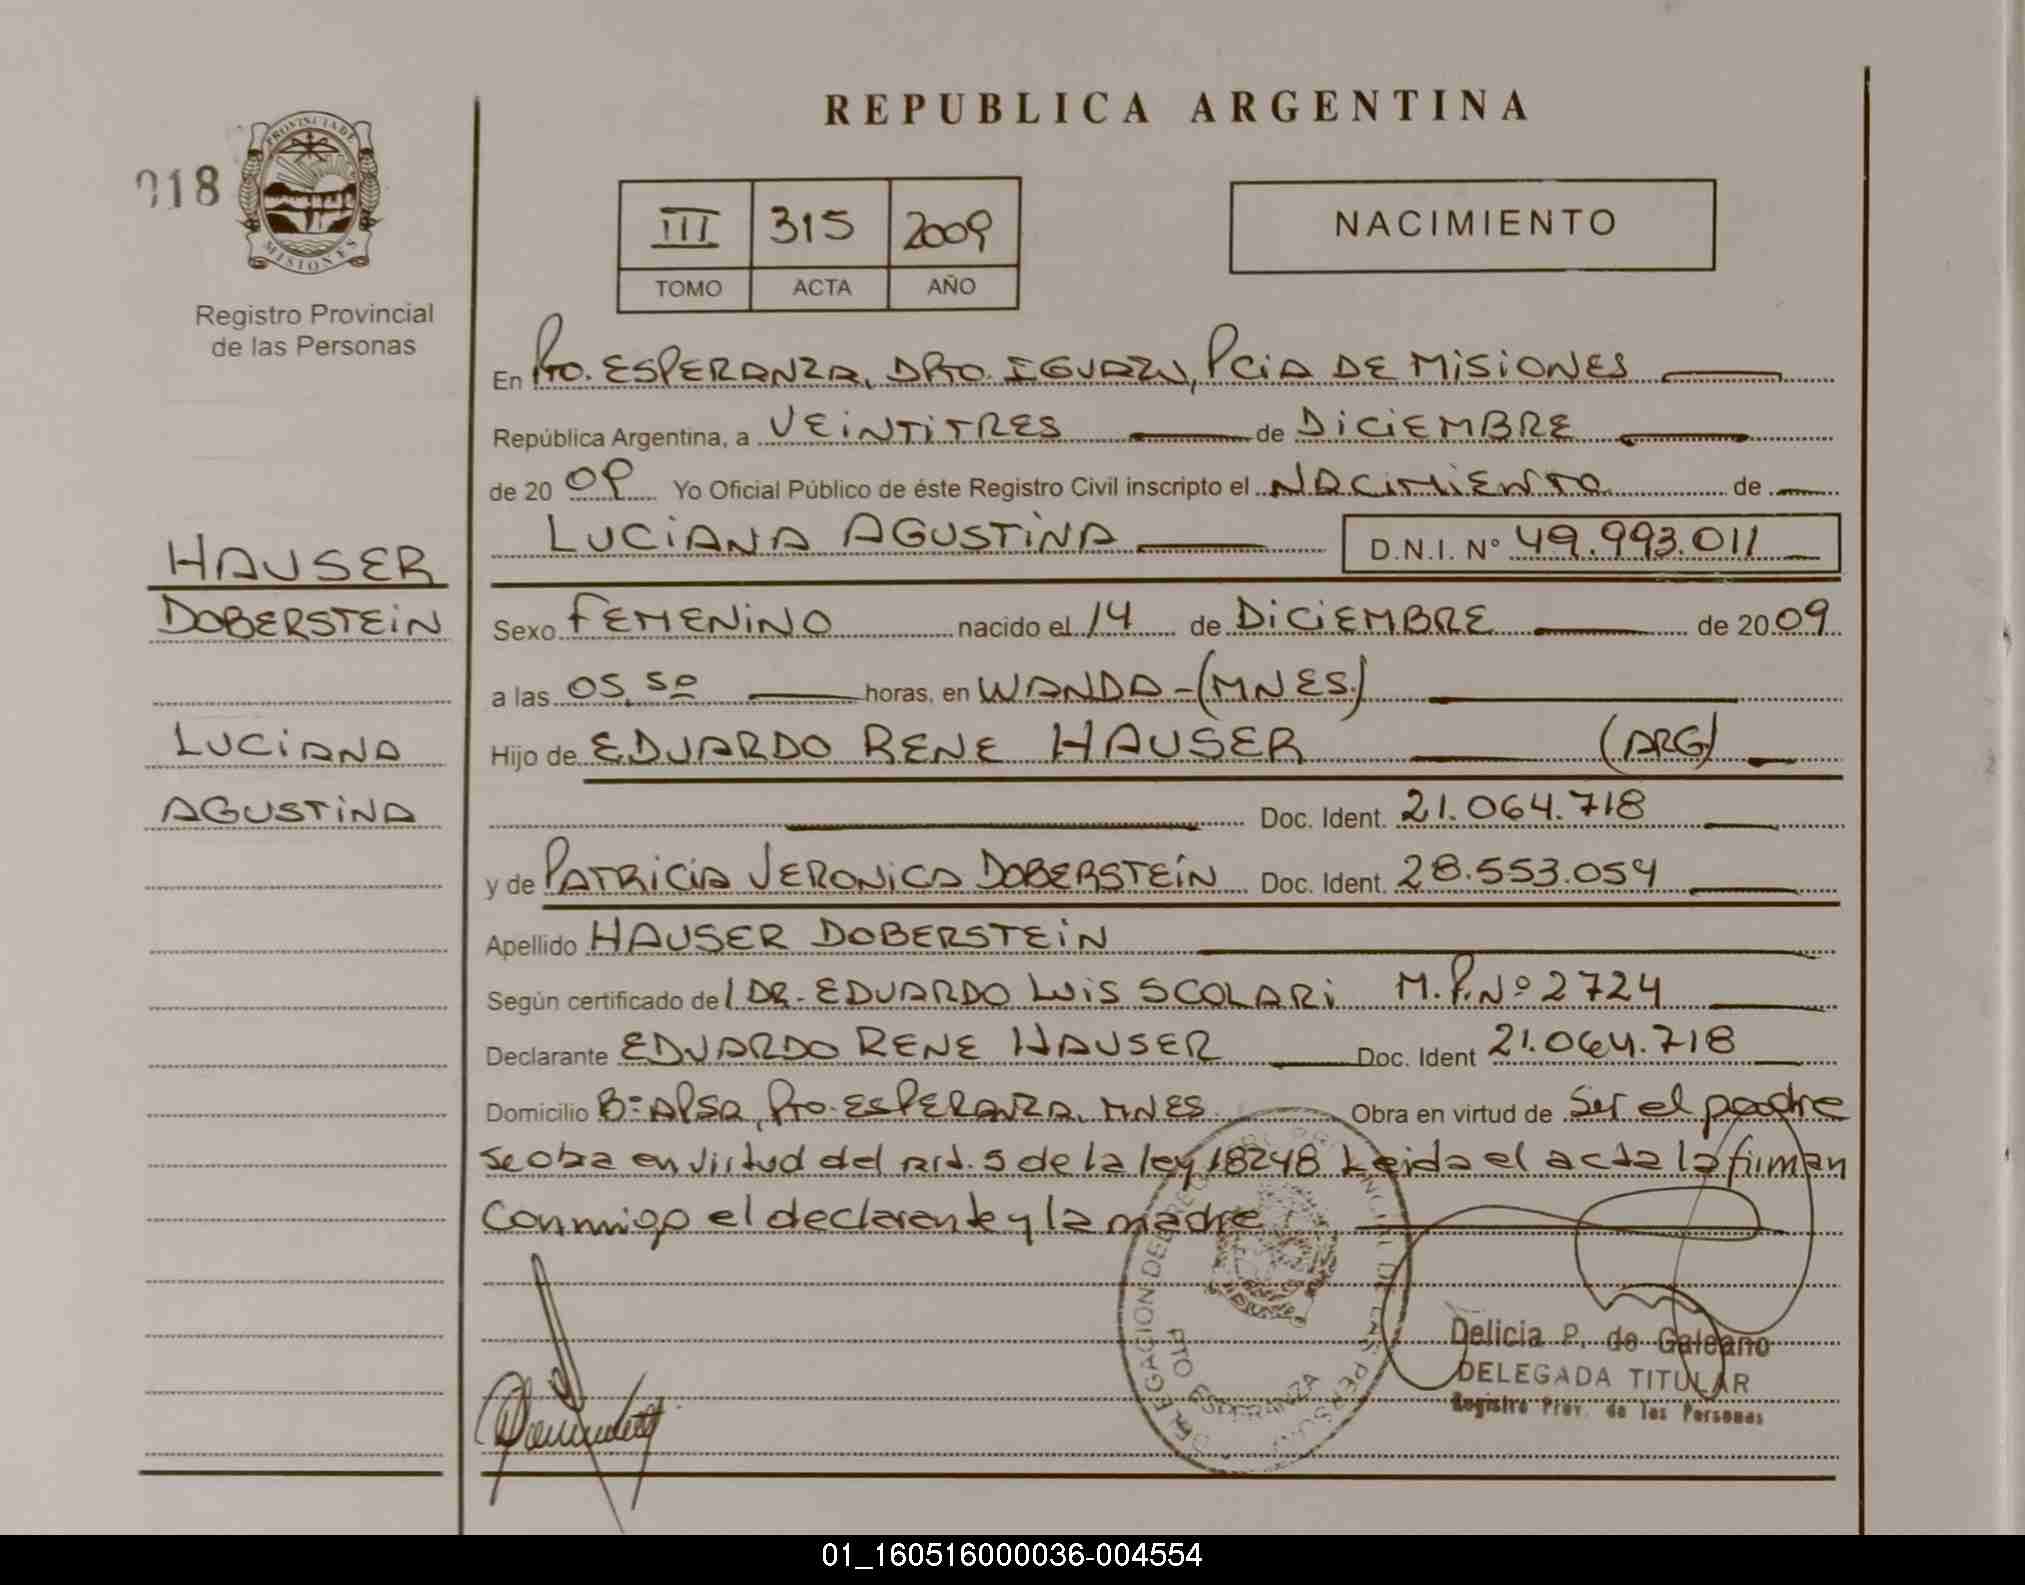 REPUBLICA ARGENTINA
018
PROVINCIA DE
MISIONES
Registro Provincial
de las Personas
III 315 2009
TOMO ACTA AÑO
NACIMIENTO
En Pto. ESPERANZA, DPTO. IGUAZU, PCiA DE MiSiONES
República Argentina, a VEiNTiTRES de DiCiEMBRE
de 2009 Yo Oficial Público de éste Registro Civil inscripto el NACiMiENTO de
LUCiANA AGUSTiNA D.N.I. Nº 49.993.011
HAUSER
DOBERSTEiN
LUCiANA
AGUSTiNA
Sexo FEMENiNO nacido el 14 de DiCiEMBRE de 2009
a las 05,50 horas, en WANDA-(MNES.)
Hijo de EDUARDO RENE HAUSER (ARG)
Doc. Ident. 21.064.718
y de PATRiCiA VERONiCA DOBERSTEiN Doc. Ident. 28.553.054
Apellido HAUSER DOBERSTEiN
Según certificado de DR. EDUARDO LUiS SCOLARi M.P.Nº 2724
Declarante EDUARDO RENE HAUSER Doc. Ident 21.064.718
Domicilio Bº APSA, Pto. ESPERANZA, MNES Obra en virtud de Ser el padre
se obra en virtud del art. 5 de la ley 18248 Leida el acta la firman
conmigo el declarante y la madre
DELEGACION DEL REGISTRO PROVINCIAL DE LAS PERSONAS
PTO ESPERANZA
Delicia P. de Galeano
DELEGADA TITULAR
Registro Prov. de las Personas
01_160516000036-004554